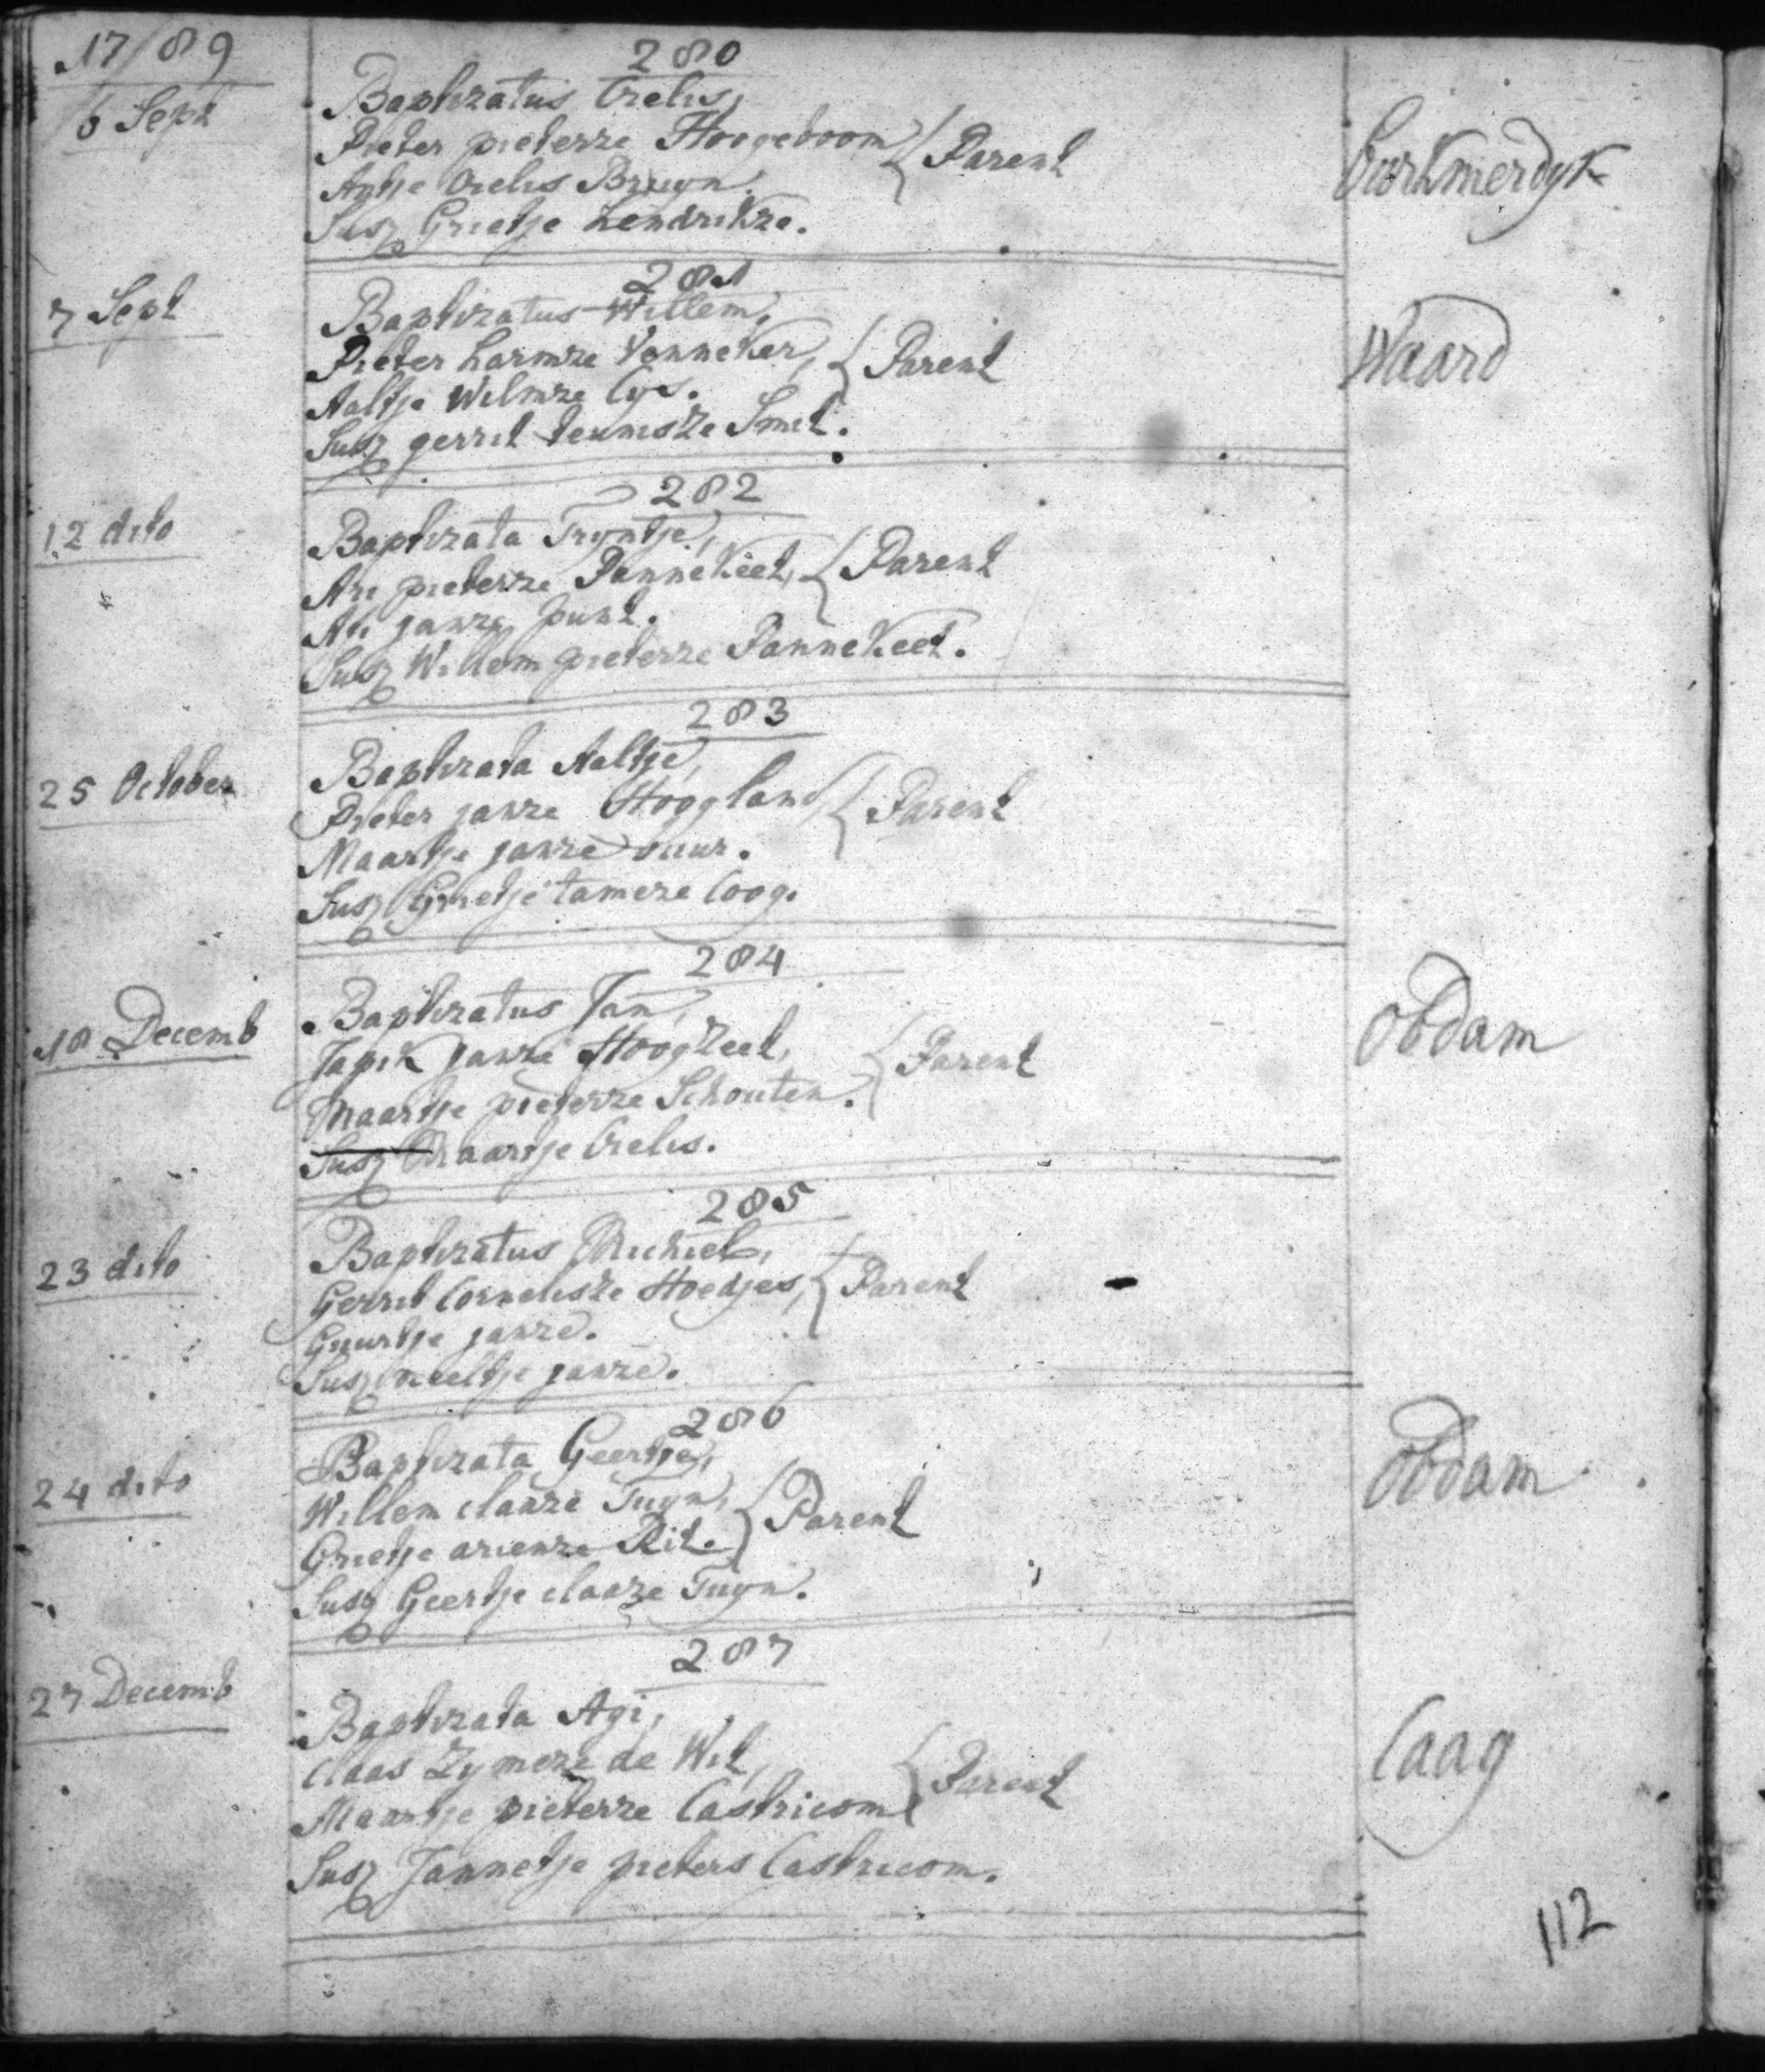 1789
280
6 Sept
Baptizatus Crelis,
Pieter pieterze Hoogeboom
Parent
Antje Crelis Bruyn.
Susz Grietje hendrikze.
281
7 Sept
Baptizatus Willem,
Pieter harmze Venneker,
Parent
Waard
Aaltje Wilmze Cys.
Susz gerrit teunisze Smit.
282
12 dito
Baptizata Tryntje,
Ari pieterze Pannekeet,
Parent
Ati janze punt.
Susz Willem pieterze Pannekeet.
283
25 October
Baptizata Aaltje,
Pieter janze Hoogland
Parent
Maartje janze buur.
Susz Grietje tameze Coog.
284
18 Decemb
Baptizatus Jan,
Japik janze Hoogzeet,
Parent
obdam
Maartje pieterze Schouten.
Susz Maartje Crelis.
285
23 dito
Baptizatus Michiel,
Gerrit Cornelisze Hoedjes,
Parent
Guurtje janze.
Susz neeltje janze.
286
24 dito
Baptizata Geertje,
Willem claaze Tuyn,
Parent
obdam
Grietje arienze Rit.
Susz Geertje claaze Tuyn.
287
27 Decemb
Baptizata Agi,
Claas Zymeze de Wit,
Parent
Caag
Maartje pieterze Castricom
Susz Jannetje pieters Castricom.
112